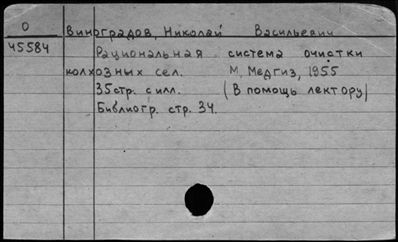 О
Виноградов, Николай Васильевич
45584
Рациональная система очистки
колхозных сел. М, Медгиз, 1955
35стр. с илл. (В помощь лектору)
Библиогр. стр. 34.